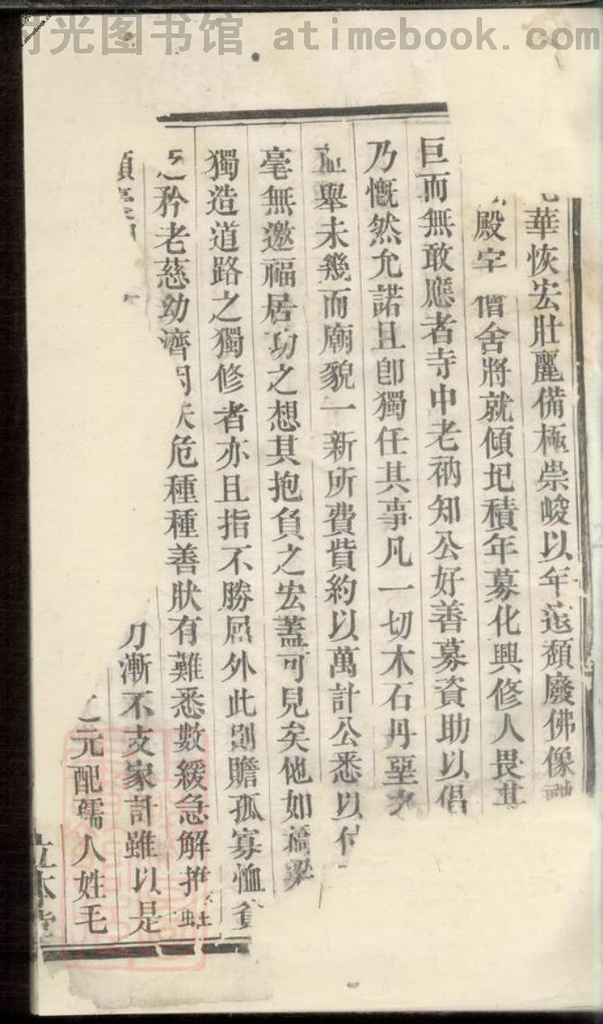 时光图书馆 atimebook.com
華恢宏壯麗備極崇峻以年遠頹廢佛像
殿宇僧舍將就傾圮積年募化興修人畏其
巨而無敢應者寺中老衲知公好善募資助以倡
乃慨然允諾且卽獨任其事凡一切木石丹堊
舉未幾而廟貌一新所費貲約以萬計公悉以
毫無邀福居功之想其抱負之宏蓋可見矣他如橋梁
獨造道路之獨修者亦且指不勝屈外此則贍孤寡恤貧
矜老慈幼濟困扶危種種善狀有難悉數緩急解推
漸不支家計雖以是
元配孺人姓毛
立本堂